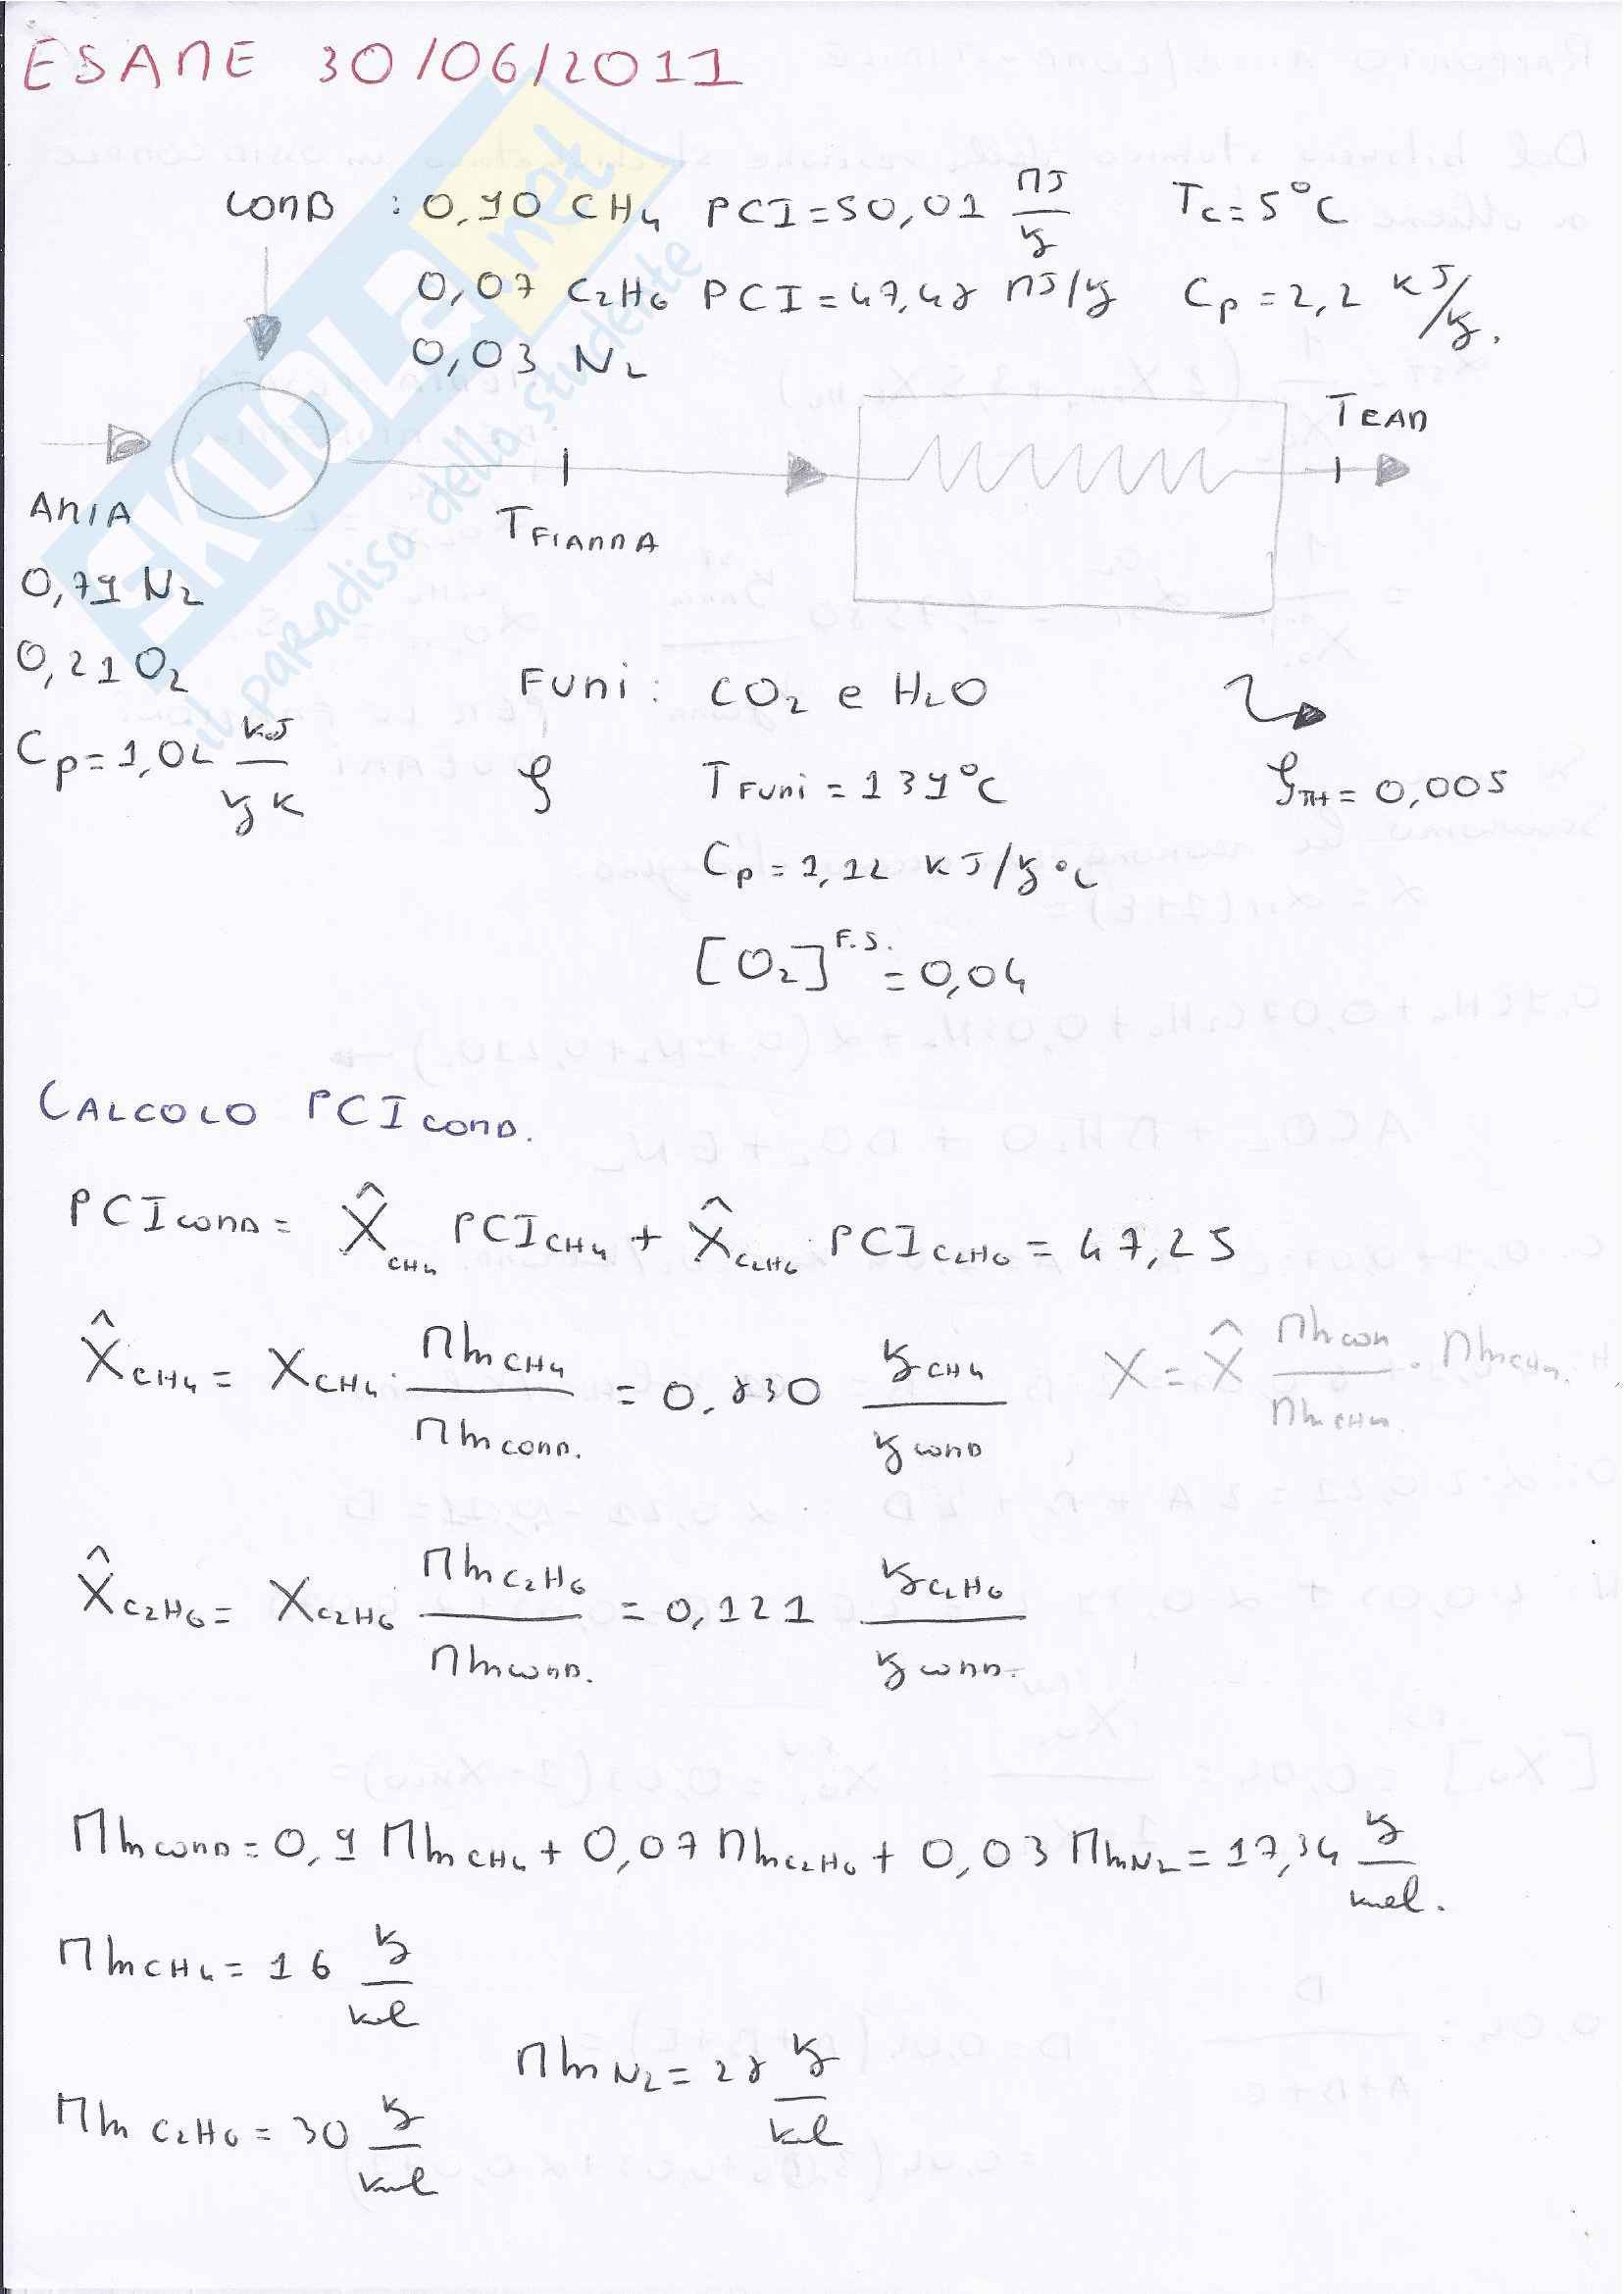 ESAME 30/06/2011
COMB : 0,90 CH4 PCI=50,01 MJ/kg Tc=5°C
0,07 C2H6 PCI=47,48 MJ/kg Cp=2,2 kJ/kg.
0,03 N2
TCAM
ARIA
TFIAMMA
0,79 N2
0,21 O2
Cp=1,04 kJ/kg K
FUMI: CO2 e H2O
TFUMI=139°C
ξTH=0,005
Cp=1,12 kJ/kg°C
[O2]F.S.=0,04
CALCOLO PCI COMB.
PCI COMB= X̂CH4 PCI CH4 + X̂C2H6 PCI C2H6 = 47,25
X̂CH4 = XCH4 · MmCH4/MmCOMB. = 0,830 kg CH4/kg COMB X = X̂ Mm COM/Mm CH4 · Mm CH4.
X̂C2H6 = XC2H6 Mm C2H6/Mm COMB. = 0,121 kg C2H6/kg COMB.
Mm COMB=0,9 Mm CH4 + 0,07 Mm C2H6 + 0,03 Mm N2 = 17,34 kg/kmol.
Mm CH4 = 16 kg/kmol
Mm N2 = 28 kg/kmol
Mm C2H6 = 30 kg/kmol
SKUOLA.net
il paradiso dello studente